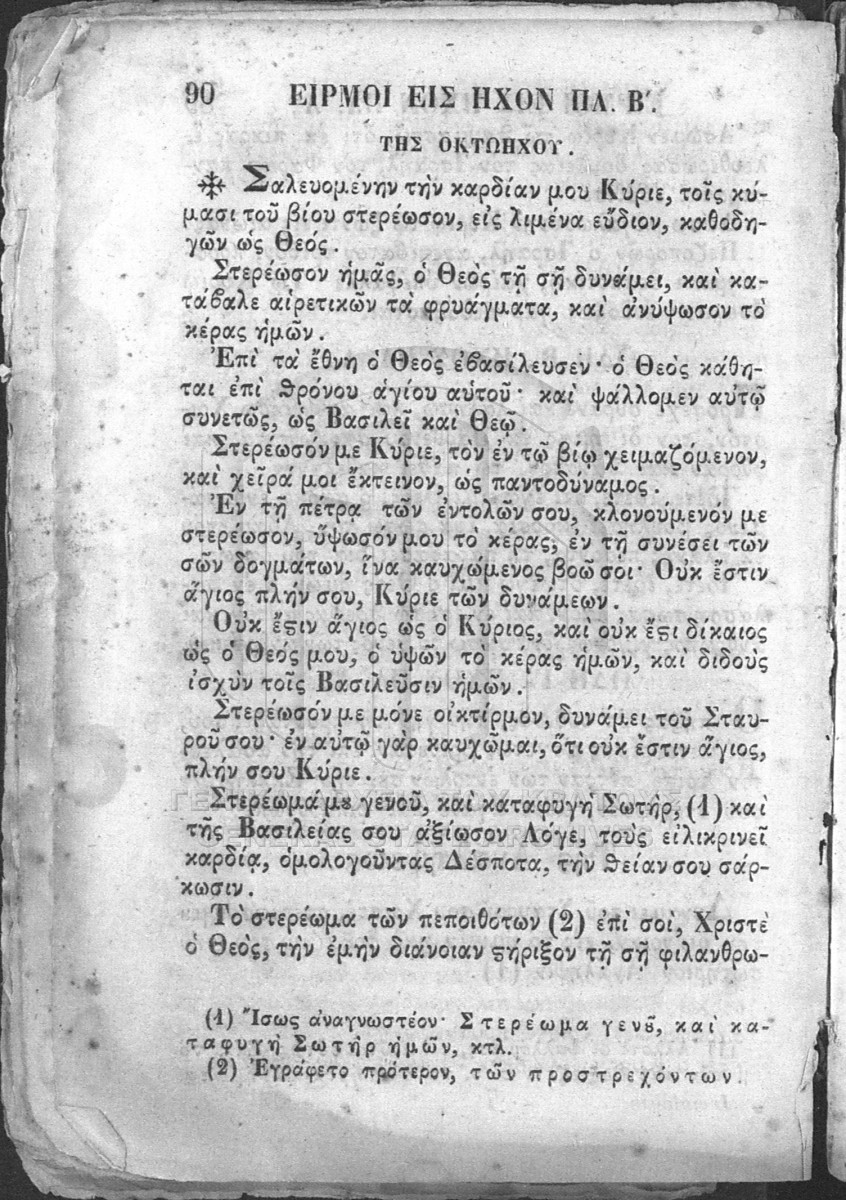 90 ΕΙΡΜΟΙ ΕΙΣ ΗΧΟΝ ΠΛ. Β΄.
ΤΗΣ ΟΚΤΩΗΧΟΥ.
Σαλευομένην τὴν καρδίαν μου Κύριε, τοῖς κύ-
μασι τοῦ βίου στερέωσον, εἰς λιμένα εὔδιον, καθοδη-
γῶν ὡς Θεός.
Στερέωσον ἡμᾶς, ὁ Θεὸς τῇ σῇ δυνάμει, καὶ κα-
τάβαλε αἱρετικῶν τὰ φρυάγματα, καὶ ἀνύψωσον τὸ
κέρας ἡμῶν.
Ἐπὶ τὰ ἔθνη ὁ Θεὸς ἐβασίλευσεν· ὁ Θεὸς κάθη-
ται ἐπὶ ϑρόνου ἁγίου αὑτοῦ· καὶ ψάλλομεν αὐτῷ
συνετῶς, ὡς Βασιλεῖ καὶ Θεῷ.
Στερέωσόν με Κύριε, τὸν ἐν τῷ βίῳ χειμαζόμενον,
καὶ χεῖρά μοι ἔκτεινον, ὡς παντοδύναμος.
Ἐν τῇ πέτρᾳ τῶν ἐντολῶν σου, κλονούμενόν με
στερέωσον, ὕψωσόν μου τὸ κέρας, ἐν τῇ συνέσει τῶν
σῶν δογμάτων, ἵνα καυχώμενος βοῶ σοι· Οὐκ ἔστιν
ἅγιος πλήν σου, Κύριε τῶν δυνάμεων.
Οὐκ ἔϛιν ἅγιος ὡς ὁ Κύριος, καὶ οὐκ ἔϛι δίκαιος
ὡς ὁ Θεός μου, ὁ ὑψῶν τὸ κέρας ἡμῶν, καὶ διδοὺς
ἰσχὺν τοῖς Βασιλεῦσιν ἡμῶν.
Στερέωσόν με μόνε οἰκτίρμον, δυνάμει τοῦ Σταυ-
ροῦ σου· ἐν αὐτῷ γὰρ καυχῶμαι, ὅτι οὐκ ἔστιν ἅγιος,
πλήν σου Κύριε.
Στερέωμά μȣ γενοῦ, καὶ καταφυγὴ Σωτὴρ, (1) καὶ
τῆς Βασιλείας σου ἀξίωσον Λόγε, τοὺς εἰλικρινεῖ
καρδίᾳ, ὁμολογοῦντας Δέσποτα, τὴν ϑείαν σου σάρ-
κωσιν.
Τὸ στερέωμα τῶν πεποιθότων (2) ἐπὶ σοὶ, Χριστὲ
ὁ Θεὸς, τὴν ἐμὴν διάνοιαν ϛήριξον τῇ σῇ φιλανθρω-
(1) Ἴσως ἀναγνωστέον· Στερέωμα γενȣ͂, καὶ κα-
ταφυγὴ Σωτὴρ ἡμῶν, κτλ.
(2) Ἐγράφετο πρότερον, τῶν προστρεχόντων.